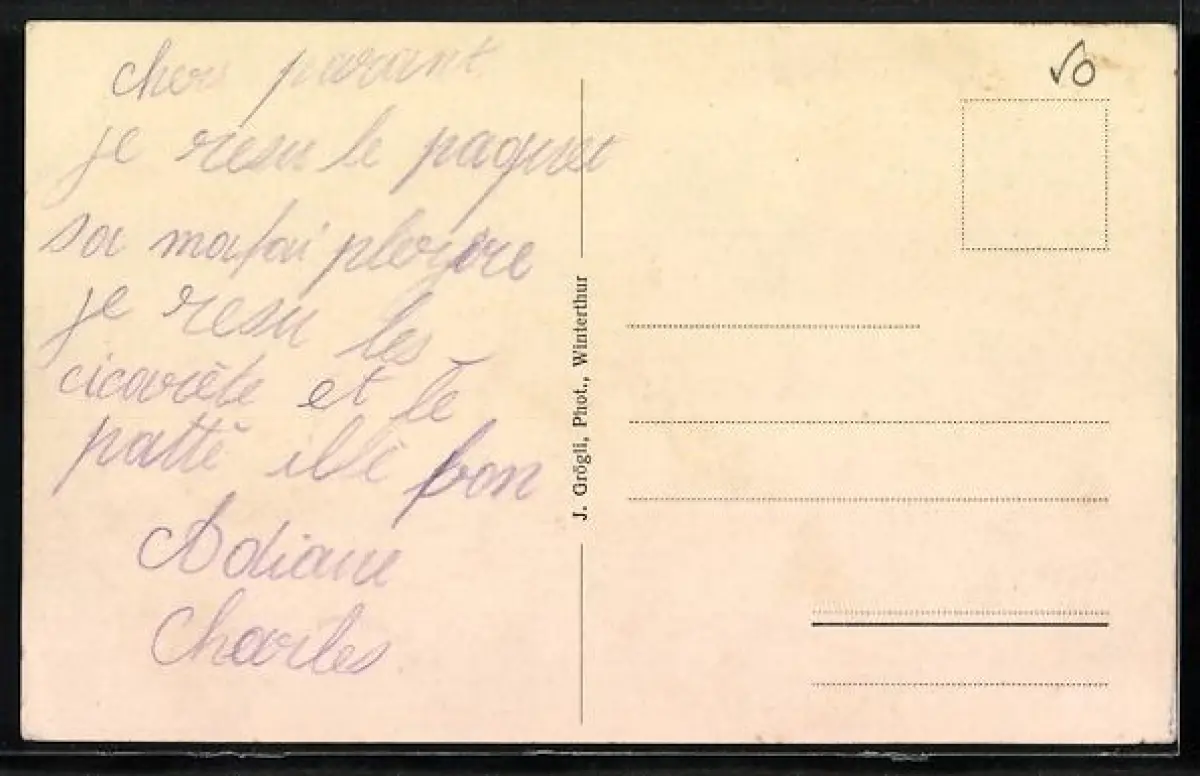 chers parant
je resu le paquet
sa mafai plesire
je resu les
cicarète et le
patté ilé bon
Adiaue
Charles
J. Grögli, Phot., Winterthur
VO